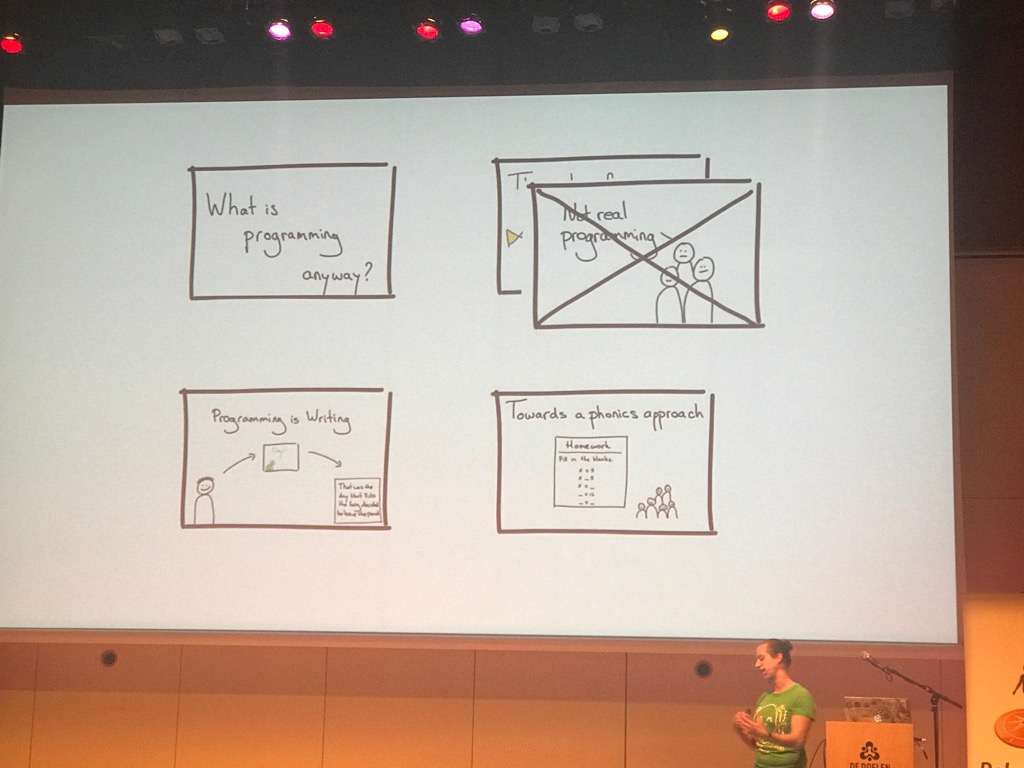 What is
programming
anyway?
Not real
programming
Programming is Writing
That was the
day that
the frog decided
to
Towards a phonics approach
Homework
Fill in the blanks
DE DOELEN